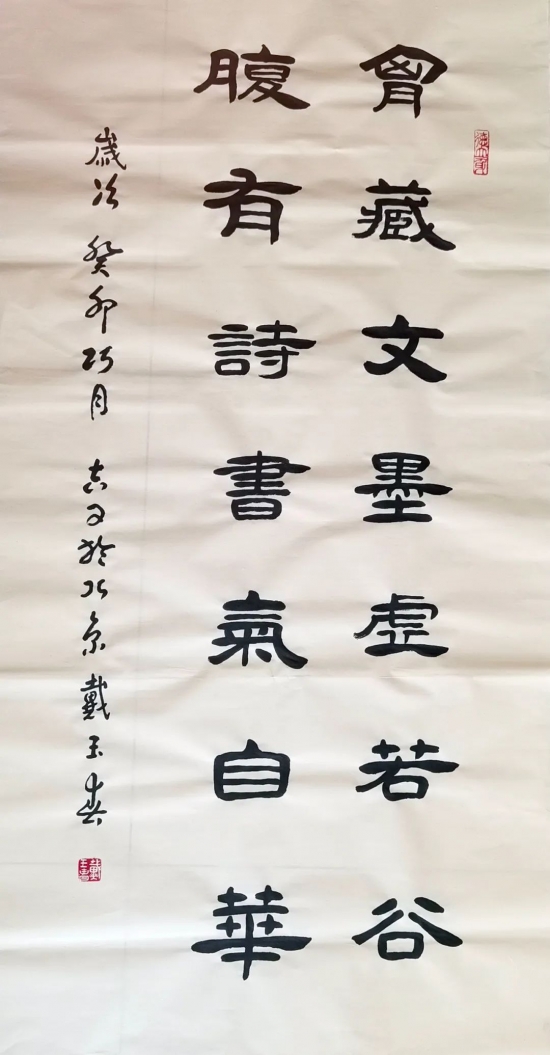 胷藏文墨虛若谷
腹有詩書氣自華
歲次癸卯巧月 古月於北京戴玉春